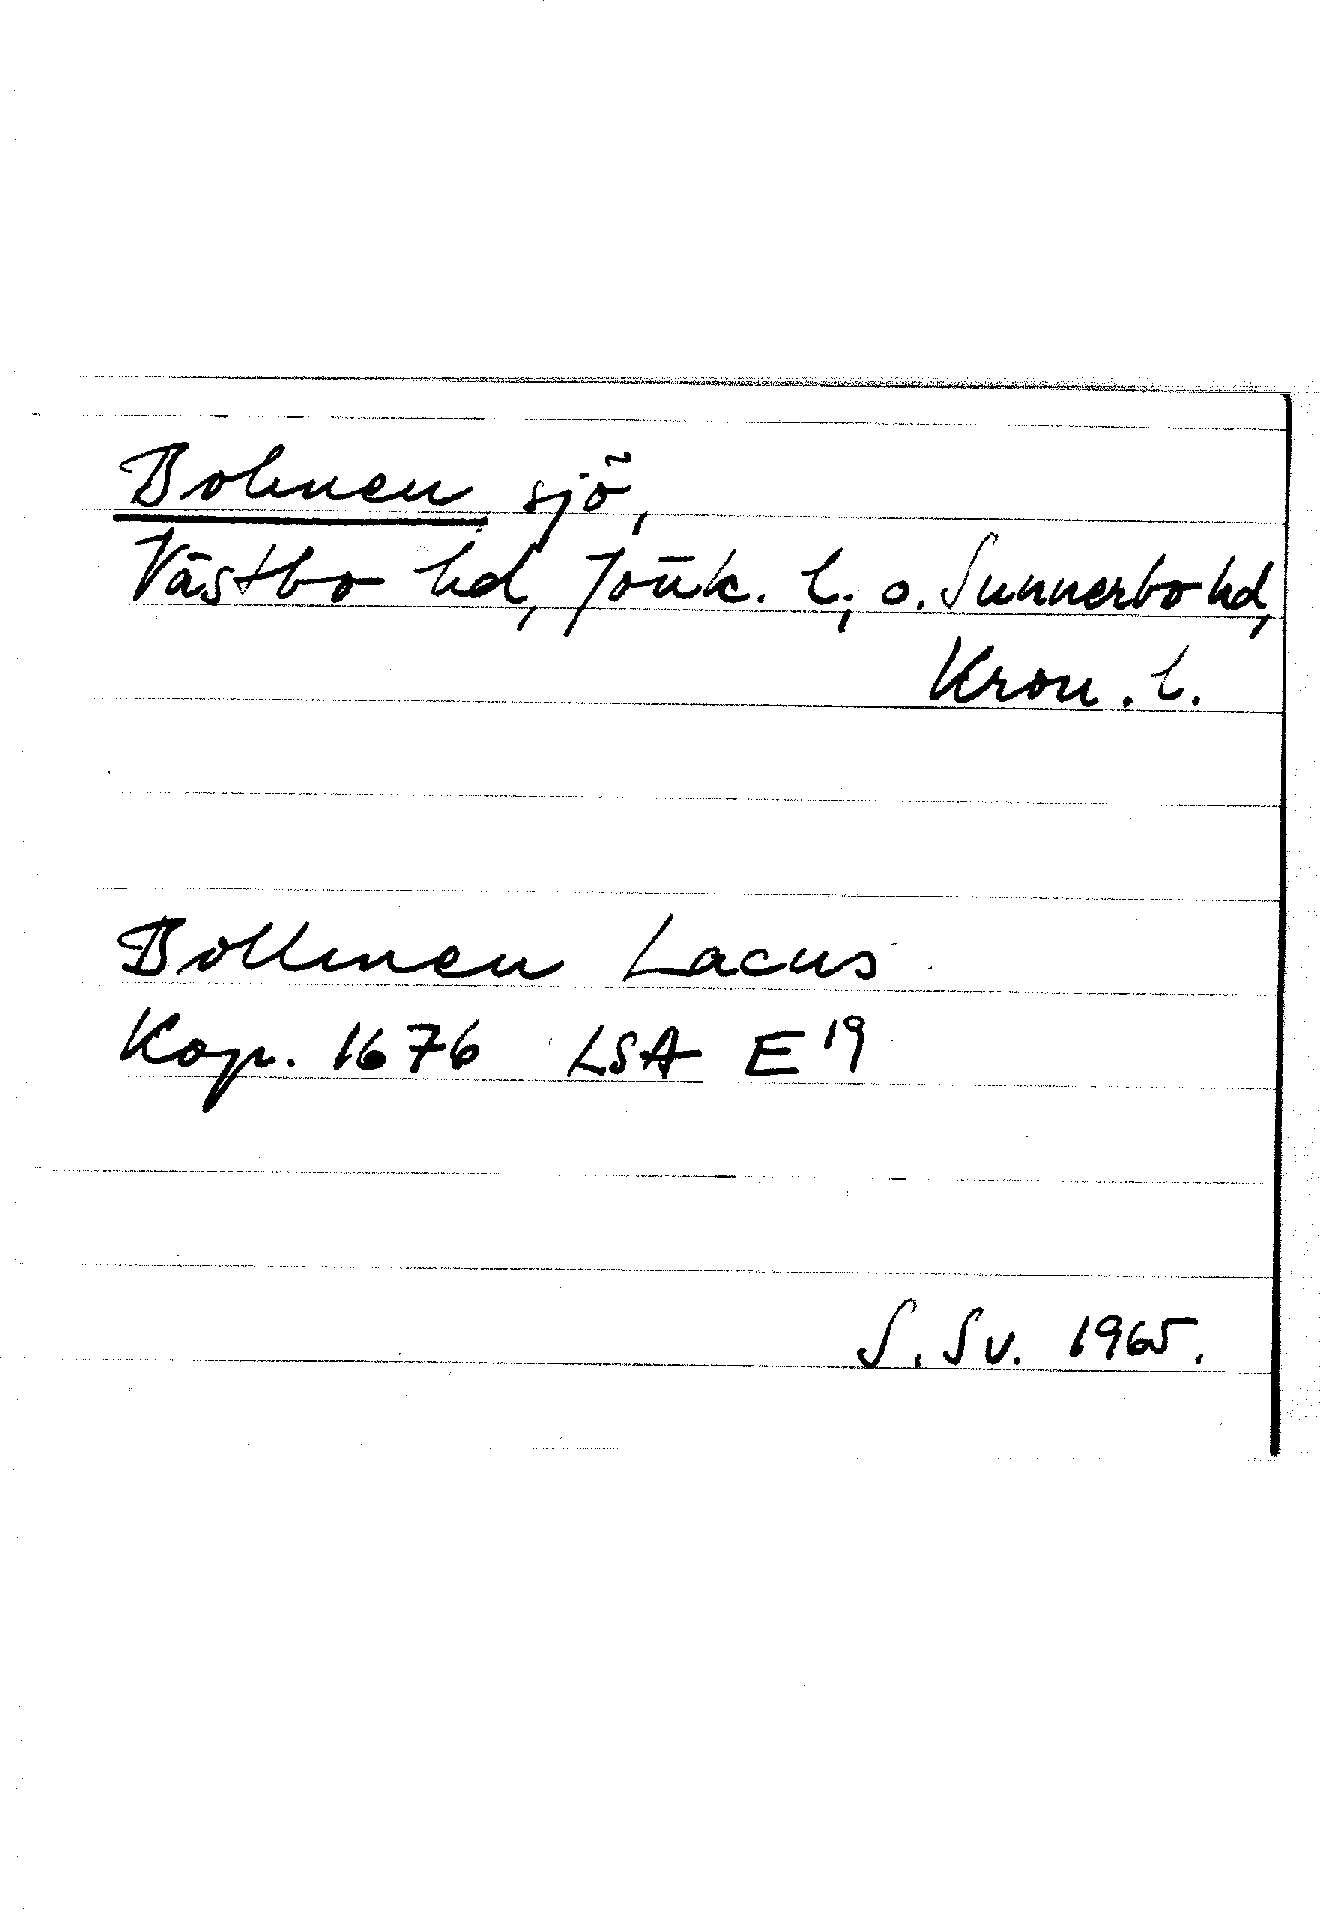 Bolmen sjö,
Västbo hd, Jönk. l; o. Sunnerbo hd,
Kron. l.
Bollmen Lacus
Kop. 1676 LSA E19
S. Sv. 1965.